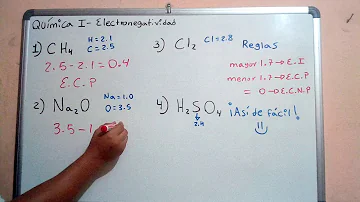 Química I - Electronegatividad
1) CH4 H=2.1
C=2.5
2.5 - 2.1 = 0.4
E.C.P
2) Na2O Na=1.0
O=3.5
3.5 - 1
3) Cl2 Cl=2.8
4) H2SO4
2.4
Reglas
mayor 1.7 → E.I
menor 1.7 → E.C.P
= 0 → E.C.N.P
¡Así de fácil!